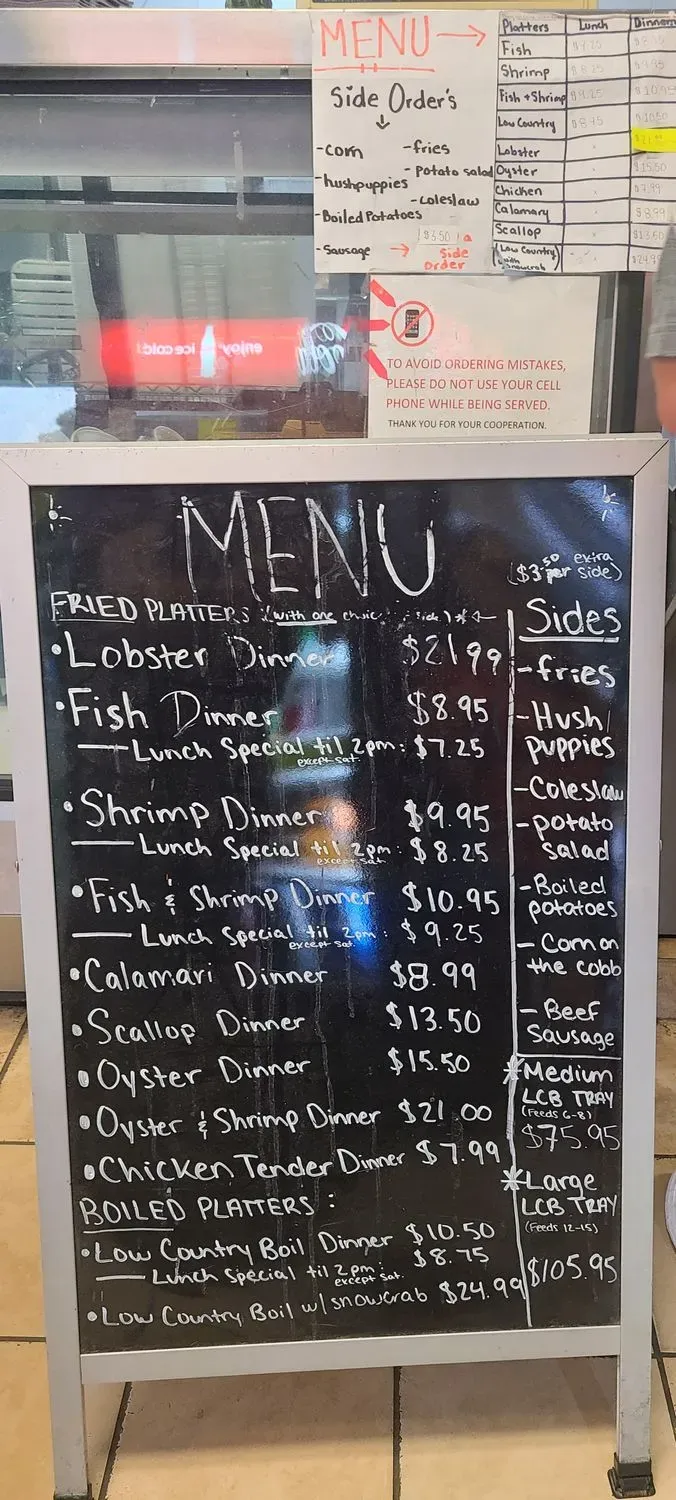 MENU →
Side Order's
↓
-corn -fries
-hushpuppies -potato salad
-coleslaw
-Boiled Potatoes
-Sausage → $3.50 a
Side
order
Platters Lunch Dinner
Fish
Shrimp $8.25 $9.95
Fish + Shrimp $9.25 $10.95
Low Country $10.50
Lobster x
Oyster x $15.50
Chicken x $7.99
Calamary x $8.99
Scallop x $13.50
(Low Country
with
snowcrab)
enjoy ice cold!
TO AVOID ORDERING MISTAKES,
PLEASE DO NOT USE YOUR CELL
PHONE WHILE BEING SERVED.
THANK YOU FOR YOUR COOPERATION.
MENU
FRIED PLATTERS (with one side) * ←
• Lobster Dinner $21 99
• Fish Dinner $8.95
— Lunch Special til 2pm: $7.25
except sat.
• Shrimp Dinner $9.95
— Lunch Special til 2pm: $8.25
except sat.
• Fish & Shrimp Dinner $10.95
— Lunch Special til 2pm: $9.25
except sat.
• Calamari Dinner $8.99
• Scallop Dinner $13.50
• Oyster Dinner $15.50
• Oyster & Shrimp Dinner $21 00
• Chicken Tender Dinner $7.99
BOILED PLATTERS:
• Low Country Boil Dinner $10.50
— Lunch Special til 2pm: $8.75
except sat.
• Low Country Boil w/snowcrab $24.99
($3.50 extra
per side)
Sides
-fries
-Hush
puppies
-Coleslaw
-potato
salad
-Boiled
potatoes
-Corn on
the cobb
-Beef
Sausage
*Medium
LCB TRAY
(Feeds 6-8)
$75.95
*Large
LCB TRAY
(Feeds 12-15)
$105.95